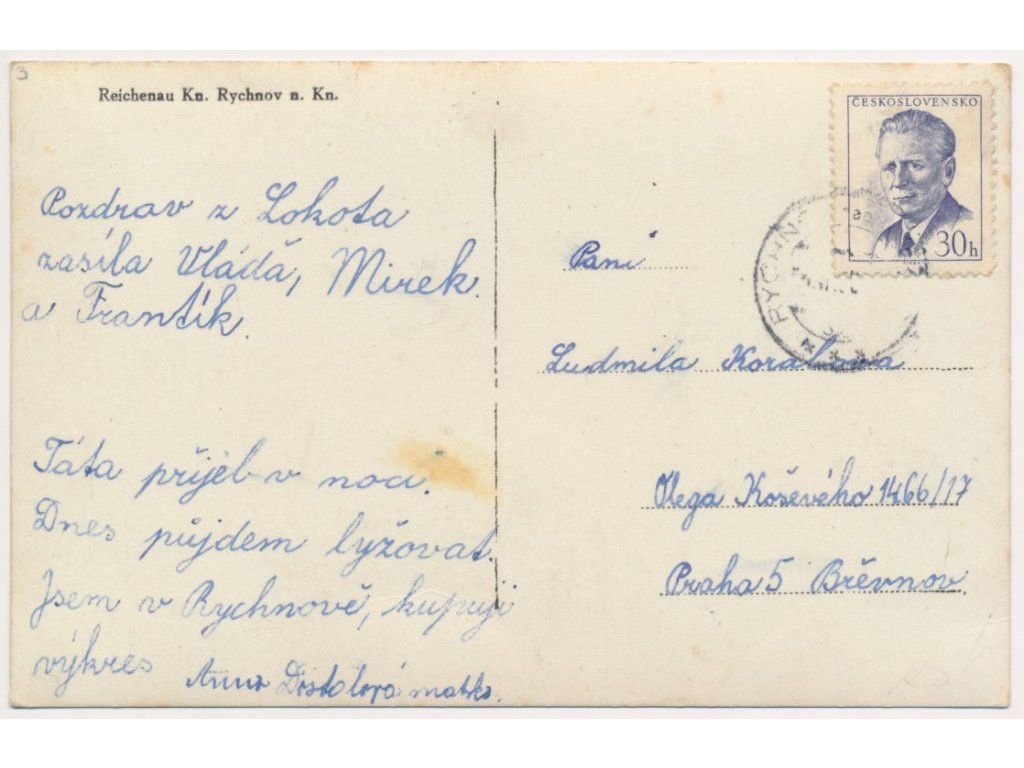 3
Reichenau Kn. Rychnov n. Kn.
ČESKOSLOVENSKO
30h
RYCHN
Pozdrav z Lokota
zasíla Vláďa, Mirek
a Frantík.
Paní
Ludmila
Olega Koševého 1466/17
Praha 5 Břěvnov
Táta přijel v noci.
Dnes půjdem lyžovat.
Jsem v Rychnově, kupuji
výkres